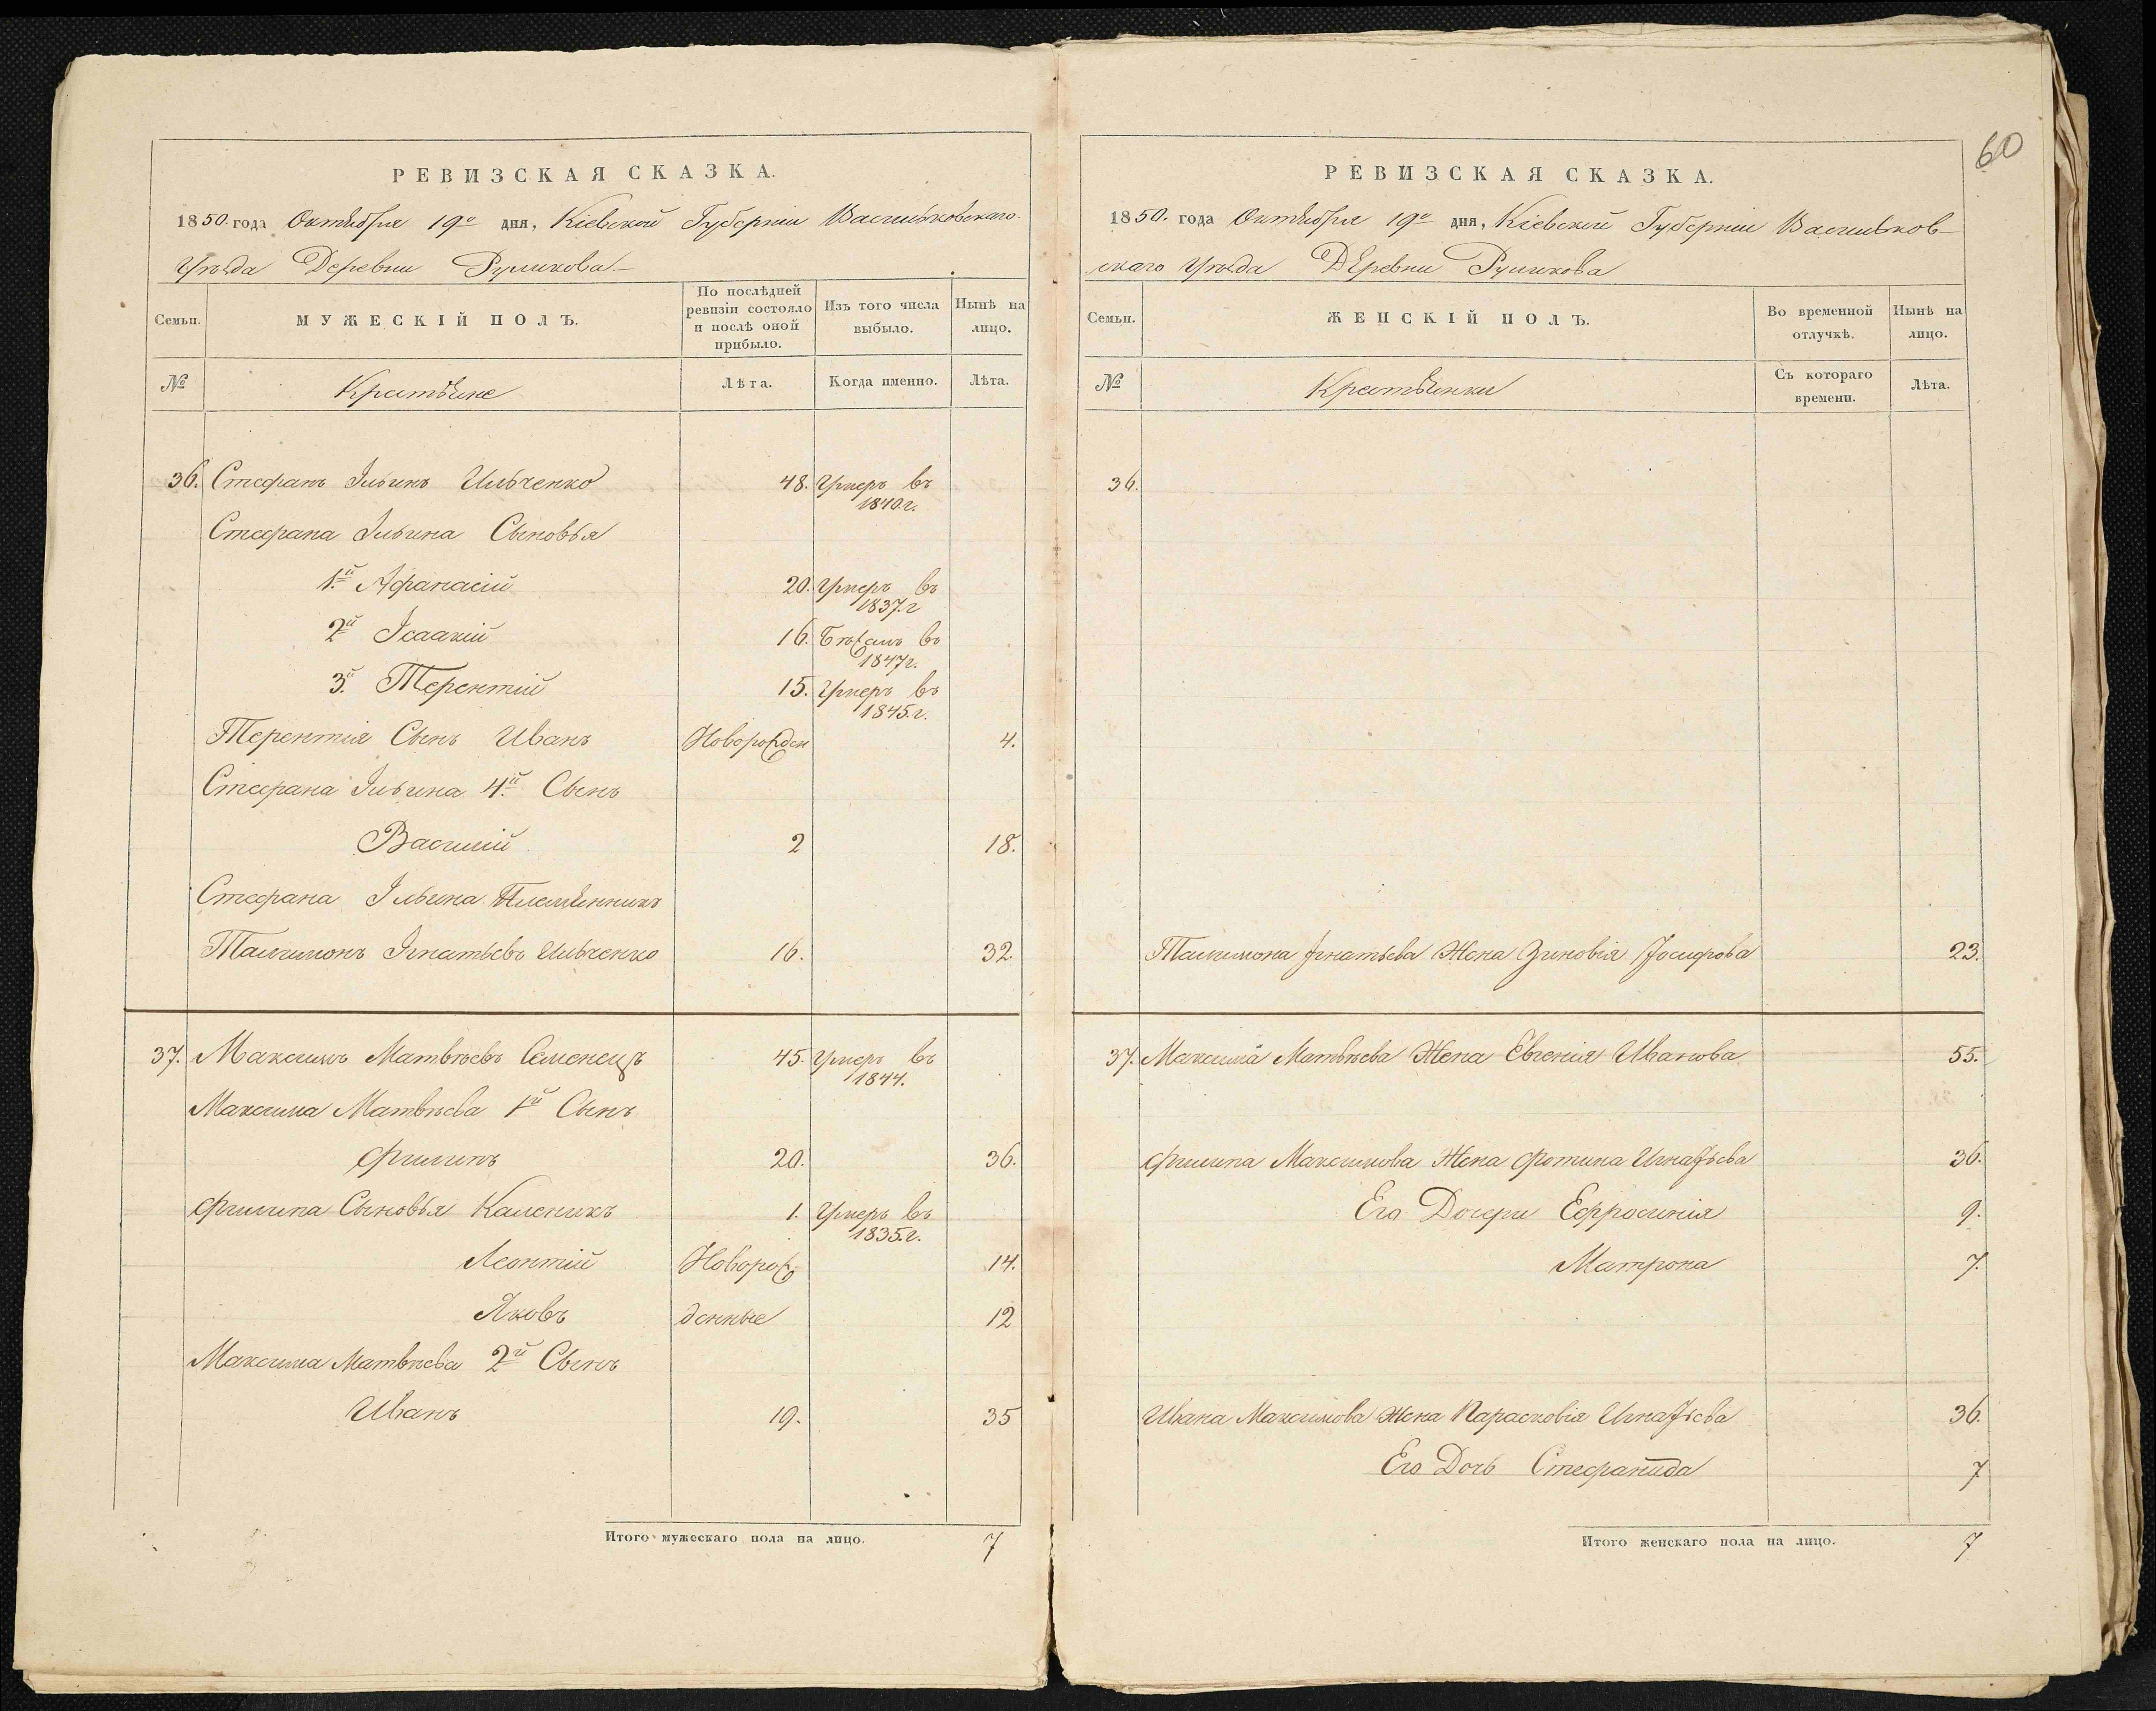 РЕВИЗСКАЯ СКАЗКА.
1850 года Октября 19го дня, Кіевской Губерніи Васильковскаго
Уѣзда Деревни Руликова
Семьи.
МУЖЕСКІЙ ПОЛЪ.
По послѣдней ревизіи состояло и послѣ оной прибыло.
Изъ того числа выбыло.
Нынѣ на лицо.
№
Крестьяне
Лѣта.
Когда именно.
Лѣта.
36. Стефанъ Ильинъ Ильченко 48. Умеръ въ 1840.г.
Стефана Ильина Сыновья
1.й Афанасій 20. Умеръ въ 1837.г
2й Ісаакій 16. Бѣжалъ въ 1847г.
3.й Терентій 15. Умеръ въ 1845.г.
Терентія Сынъ Иванъ Новорожден 4.
Стефана Ильина 4.й Сынъ
Василій 2 18.
Стефана Ильина Племянникъ
Талимонъ Игнатьевъ Ильченко 16. 32.
37. Максимъ Матвѣевъ Семенецъ 45. Умеръ въ 1844.
Максима Матвѣева 1й Сынъ
Филипъ 20. 36.
Филипа Сыновья Каленикъ 1. Умеръ въ 1835.г.
Леонтій Новорож- 14.
Яковъ денные 12
Максима Матвѣева 2й Сынъ
Иванъ 19. 35
Итого мужескаго пола на лицо. 7
60
РЕВИЗСКАЯ СКАЗКА.
1850. года Октября 19го дня, Кіевской Губерніи Васильков-
скаго Уѣзда Деревни Руликова
Семьи.
ЖЕНСКІЙ ПОЛЪ.
Во временной отлучкѣ.
Нынѣ на лицо.
№
Крестьянки
Съ котораго времени.
Лѣта.
36.
Талимона Игнатьева Жена Зиновія Іосифова 23.
37. Максима Матвѣева Жена Евгенія Иванова 55.
Филипа Максимова Жена Фотина Игнатьева 36.
Его Дочери Ефросинія 9.
Матрона 7.
Ивана Максимова Жена Парасковія Игнатьева 36.
Его Дочь Стефанида 7
Итого женскаго пола на лицо. 7